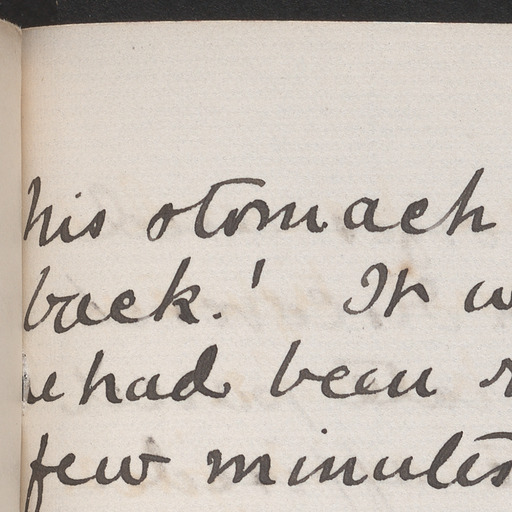 his stomach
back.' It
he had been
few minutes